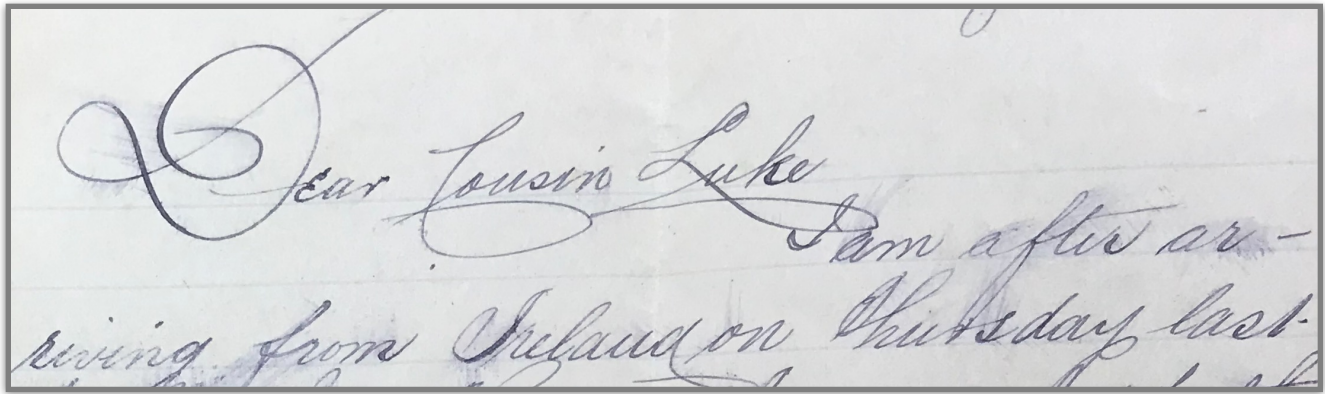 Dear Cousin Luke
I am after ar-
riving from Ireland on Thursday last